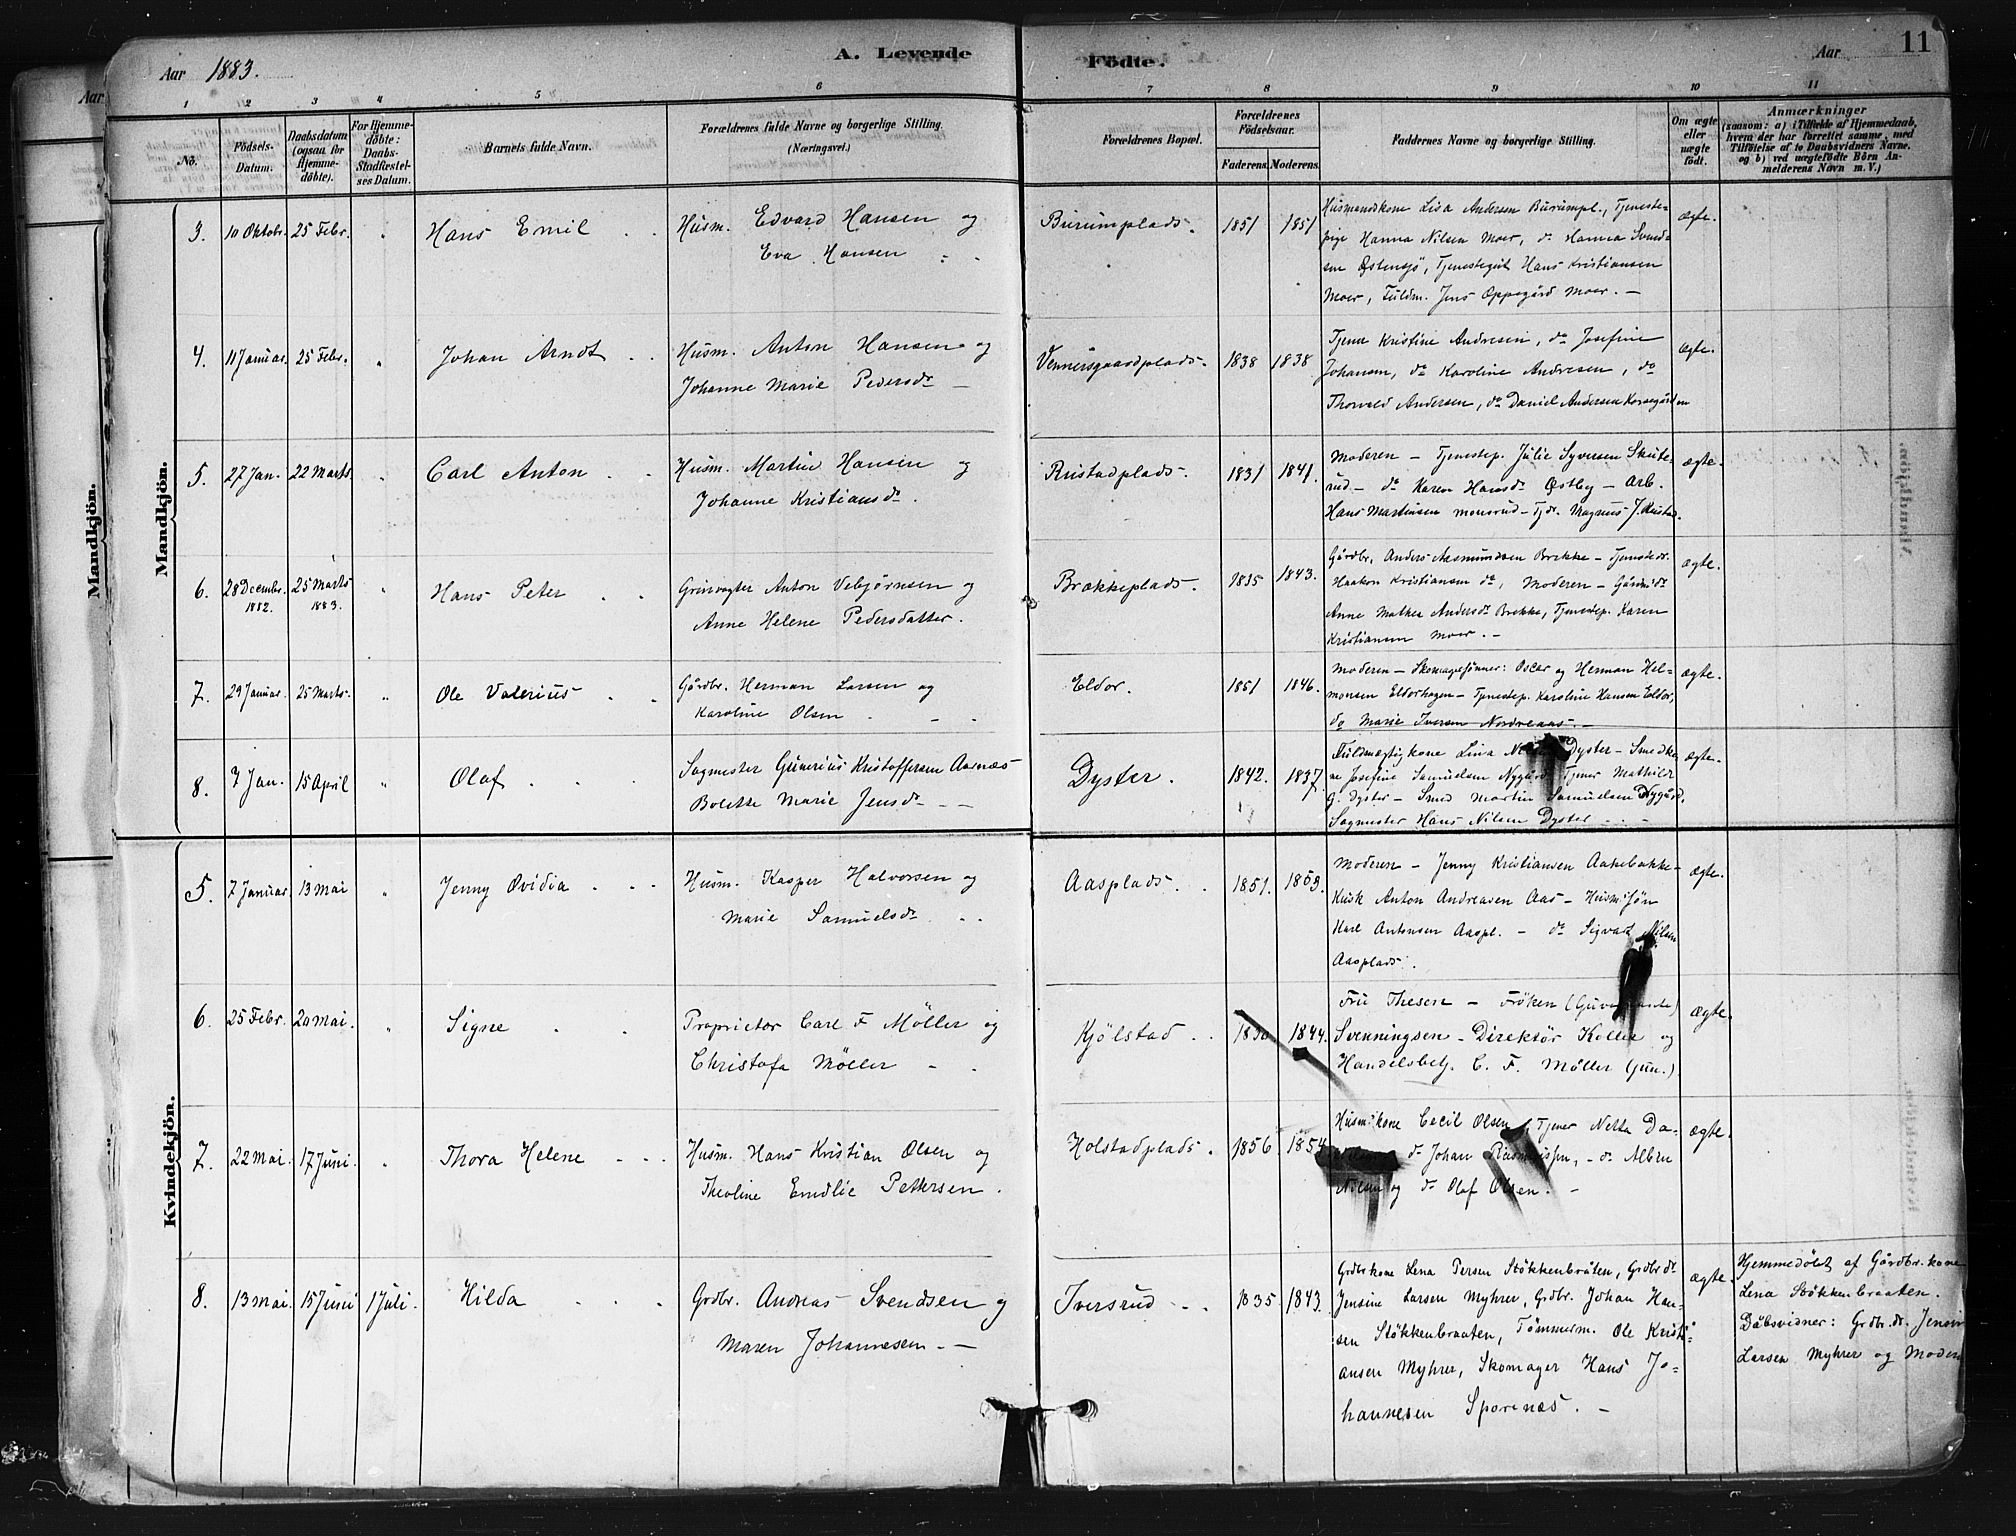 Aar 1883.
A. Levende
Fødte.
Aar
11
Aar
1 2 3 4 5 6 7 8 9 10 11
No.
Födsels-Datum.
Daabsdatum (ogsaa for Hjemmedöbte).
For Hjemmedöbte: Daabs-Stadfæstelses Datum.
Barnets fulde Navn.
Forældrenes fulde Navne og borgerlige Stilling. (Næringsvei.)
Forældrenes Bopæl.
Forældrenes Födselsaar.
Faderens. Moderens.
Faddernes Navne og borgerlige Stilling.
Om ægte eller uægte födt.
Anmærkninger
(saasom: a) i Tilfælde af Hjemmedaab,
hvem der har forrettet samme, med
Tilföielse af to Daabsvidners Navne,
og b) ved uægtefödte Börn An-
melderens Navn m. V.)
Mandkjön.
Mandkjön.
3. 10 Oktobr. 25 Febr. " Hans Emil Husm. Edvard Hansen og
Eva Hansen
Burumplads. 1851 1851
Husmandskone Lisa Andersen Burumpl., Tjeneste-
pige Hanna Nilsen Moer, do Hanna Svend-
sen Østensjö, Tjenestegut Hans Kristiansen
Moer, Fuldm. Jens Oppegård Moer. —
ægte.
4. 11 Januar. 25 Febr. " Johan Arndt Husm. Anton Hansen og
Johanne Marie Pedersdr
Vennersgaardplads. 1838 1838
Tjener Kristine Andresen, do Josefine
Johansen, do Karoline Andresen, do
Thorvald Andersen, do Daniel Andersen Korsegården
ægte.
5. 27 Jan. 22 Marts " Carl Anton Husm. Martin Hansen og
Johanne Kristiansdr.
Rustadplads. 1831 1841.
Moderen — Tjenestep. Julie Syversen Skute-
rud — do Karen Hansdr Østby — Arb.
Hans Martinsen Monsrud — Tjdr. Magnus J. Rustad.
ægte.
6. 28 December 1882. 25 Marts 1883. " Hans Peter Grinvogter Anton Vebjörnsen og
Anne Helene Pedersdatter.
Brækkeplads. 1835 1843.
Gårdbr. Anders Aasmundsen Brekke — Tjenestedr.
Haakon Kristiansen do, Moderen — Gårdmdr
Anne Mathea Andersdr Brekke, Tjenestep. Karen
Kristiansen Moer. —
ægte.
7. 29 Januar. 25 Marts. " Ole Valerius Gårdbr. Herman Larsen og
Karoline Olsen
Eldor. 1851 1846.
Moderen — Skomagersönner: Oscar og Herman Hel-
monsen Eldorhagen — Tjenestep. Karoline Hansen Eldor,
do Marie Iversen Nordreaas. —
ægte.
8. 7 Jan. 15 April " Olaf Sagmester Gunerius Kristoffersen Aarnæs
Bolette Marie Jensdr
Dyster. 1842. 1837.
Fuldmægtigkone Lina Dyster — Smedko-
ne Josefine Samuelsen Nygård Tjener Mathilde
G. Dyster — Smed Martin Samuelsen Nygård,
Sagmester Hans Nilsen Dyster
ægte.
Kvindekjön.
5. 7 Januar. 13 Mai " Jenny Ovidia Husm. Kasper Halvorsen og
Marie Samuelsdr
Aasplads. 1851. 1853.
Moderen — Jenny Kristiansen Aakebakke —
Kusk Anton Andreasen Aas — Husm. Søn
Karl Antonsen Aaspl. — do Sigvart Nilsen
Aasplads.
ægte.
6. 25 Febr. 20 Mai. " Signe Proprietær Carl F Möller og
Christofa Möller
Kjölstad 1830 1844.
Fru Thesen — Frøken
Svenningsen — Direktør Keller og
Handelsbetj. C. F. Møller (jun.).
ægte.
7. 22 Mai. 17 Juni. " Thora Helene Husm. Hans Kristian Olsen og
Theoline Emelie Pettersen.
Holstadplads. 1856 1854
Husm. kone Cecil Olsen, Tjener Netta Da-
do Johan — do Albin
Nilsen og do Olaf Olsen. —
ægte.
8. 13 Mai 15 Juni 1 Juli. Hilda Grdbr. Andreas Svendsen og
Maren Johannesen. —
Iversrud 1835. 1843.
Grdbrkone Lena Persen Støkkenbråten, Grdbr.dr
Jensine Larsen Myhrer, Grdbr. Johan Han-
sen Støkkenbraaten, Tömmerm. Ole Kristi-
ansen Myhrer, Skomager Hans Jo-
hannesen Sporenæs. —
ægte.
Hjemmedöbt af Gårdbr.kone
Lena Støkkenbraaten.
Dåbsvidner: Grdbr.dr. Jensine
Larsen Myhrer og Moderen